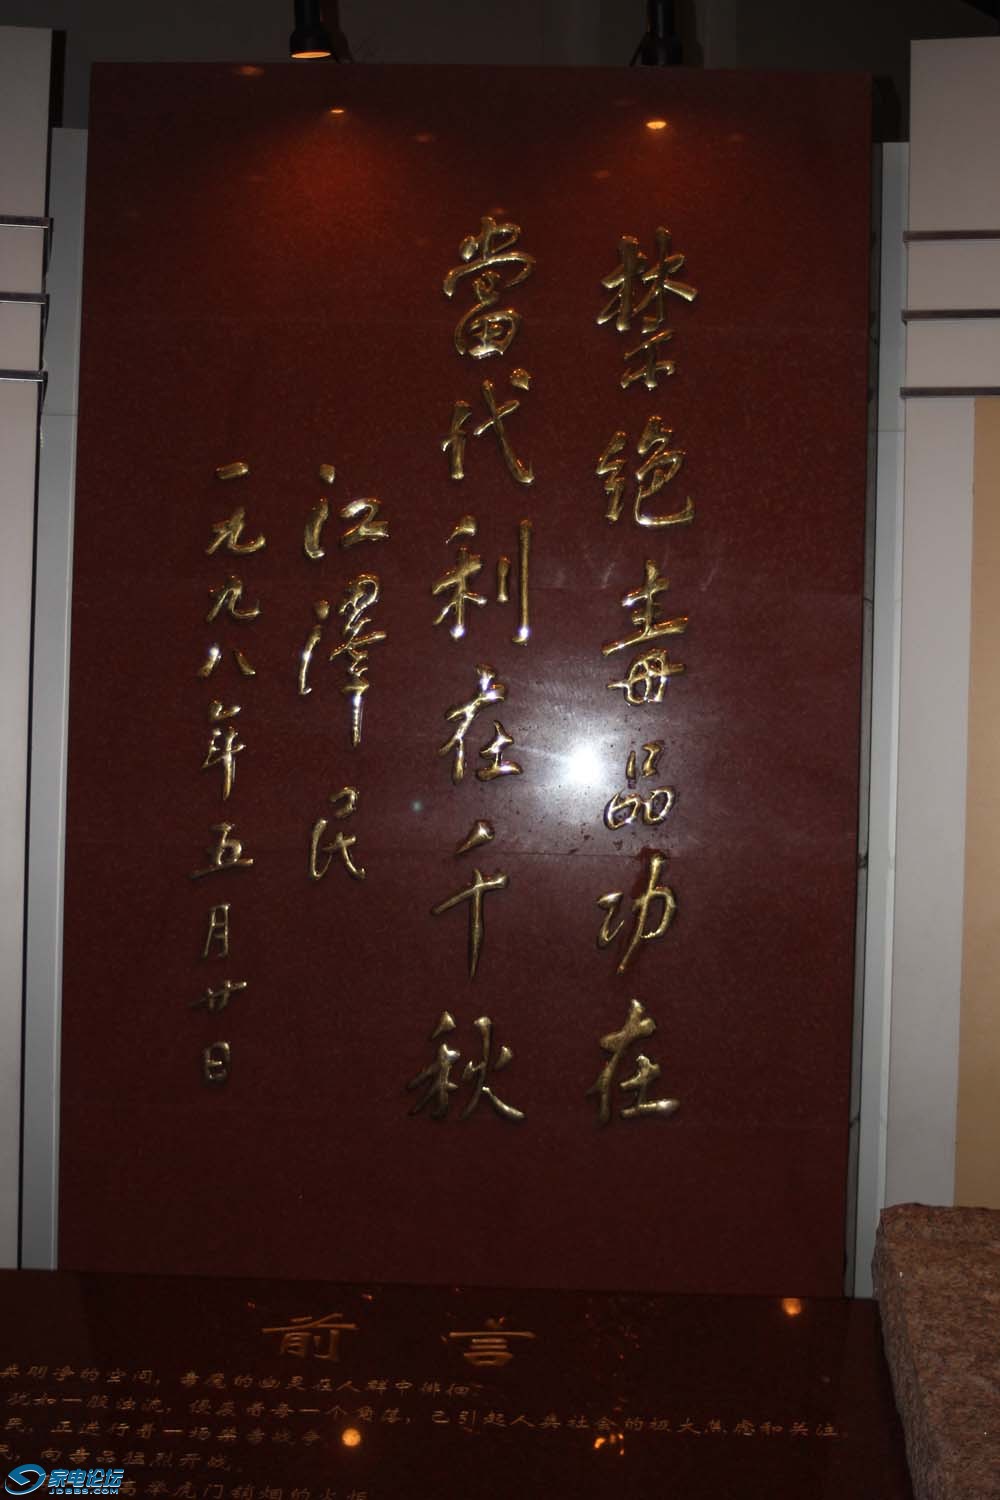 禁绝毒品功在
當代利在千秋
江澤民
一九九八年五月廿日
前言
明净的空间，毒魔的幽灵在人群中徘徊。
犹如一股浊流，侵蚀着每一个角落，已引起人类社会的极大焦虑和关注。
正进行着一场禁毒战争
向毒品猛烈开战。
高举虎门销烟的火炬
家电论坛
JDBBS.COM